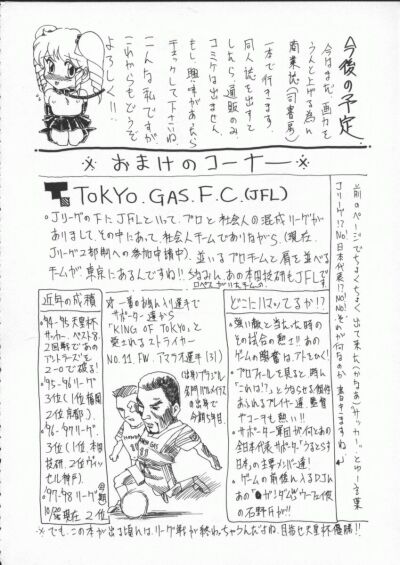 今後の予定
今はまだ画力を
うんと上げる為に
商業誌(司書房)
一本で行きます。
同人誌を出すと
したら、通販のみ
コミケは出ません。
もし興味があったら
チェックして下さいね
こんな私ですが
これからもどうぞ
よろしく!!
※おまけのコーナー※
前のページでちょくちょく出て来た「かなぁ」「サッカー」とゆー言葉
Jリーグ!?No!日本代表!?No!No!その訳が何なのか書きますね
TOKYO.GAS.F.C.(JFL)
。Jリーグの下にJFLといって、プロと社会人の混成リーグが
ありまして、その中にあって、社会人チームでありながら(現在、
Jリーグ2部制への参加申請中)、並いるプロチームと肩を並べる
チームが東京にあるんですね!!ちなみに、あの本田技研もJFLです。
近年の成績
'94-'95天皇杯
サッカー、ベスト8、
2回戦であの
アントラーズを
2-0で破る!
'95-'96リーグ
3位(1位福岡
2位京都)
'96-'97リーグ
3位(1位本田
技研、2位ヴィッ
セル神戸)
'97-'98リーグ
10/20現在2位
☆一番のお気に入り選手で
サポーター達から
「KING OF TOKYO」と
愛されるストライカー
NO.11.FW.アマラオ選手(31)
(は有)ブラジル
名門パルメイラス
の出身で
今期5年目。
どこにハマってるか!?
。強い敵と当たった時の
その試合の熱さ!!あの
ゲームの興奮は、アトをひく!
。プロフィールを見ると時に
「これは?」とうならせる個性
あふれるプレイヤー達、監督
やコーチも熱い!!
。サポーター軍団が何とあの
全日本代表サポータ「うるとらす
日本」の主要メンバー達!
。ゲームの前後に入るDJが
あの
の石野氏が!!
※でも、この本が出る頃にはリーグ戦が終わっちゃうんだよね、目指せ天皇杯優勝!!